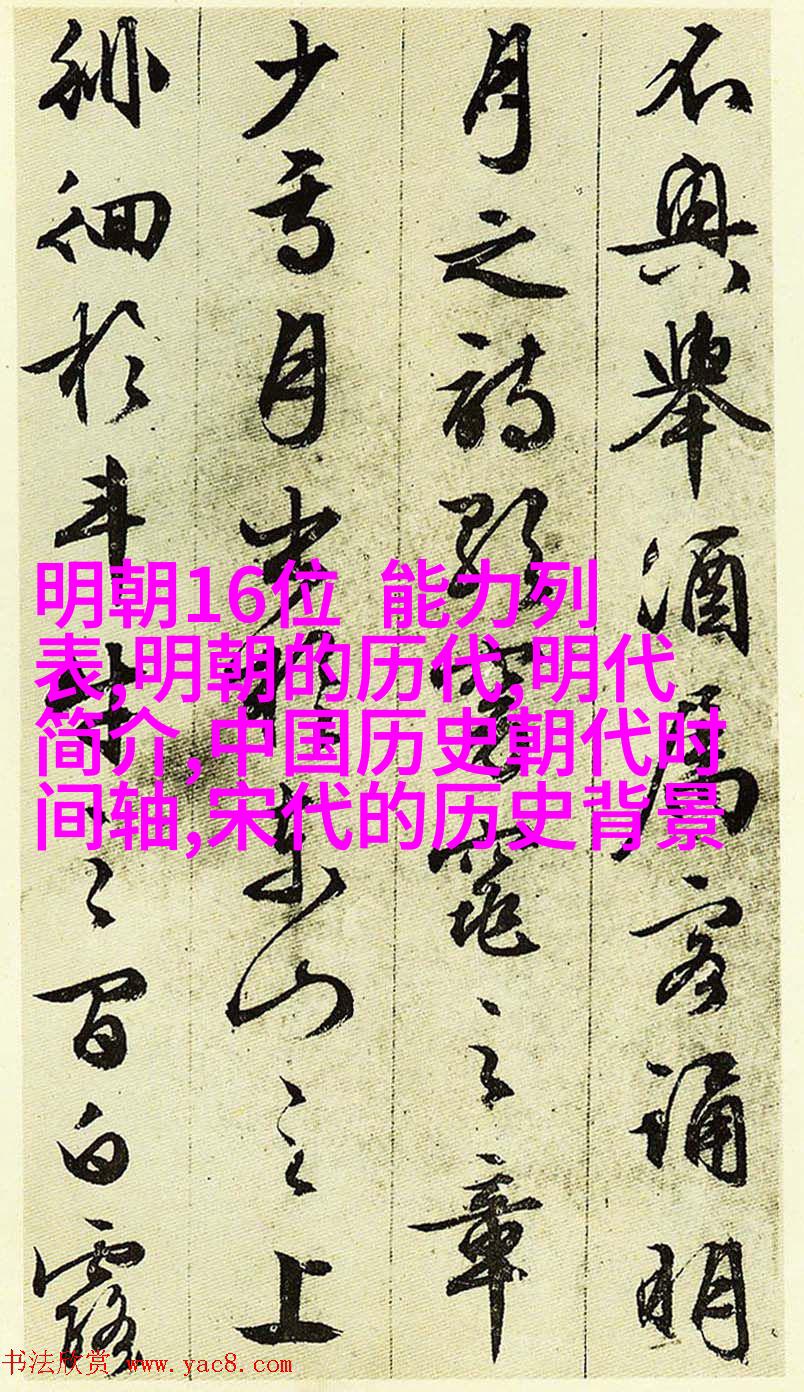 不興舉酒屬客誦明
月之詩歌窈窕之章
少焉月出於東山之上
徘徊於斗牛之間白露
明朝16位 能力列
表,明朝的历代,明代
简介,中国历史朝代时
间轴,宋代的历史背景
书法欣赏 www.yac8.com